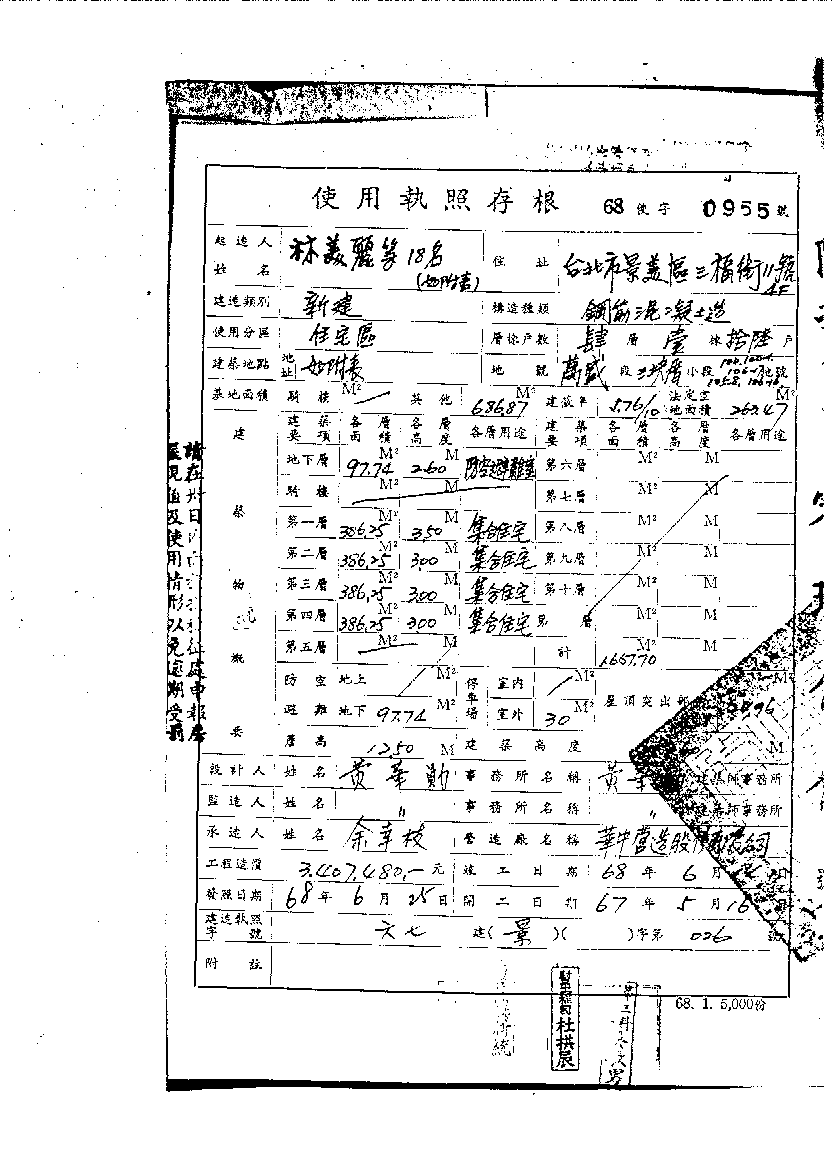 使用執照存根 68使字 0955號
起造人姓名 林美麗等18名(如附表) 住址 台北市景美區三福街11號4F
建造類別 新建 構造種類 鋼筋混凝土造
使用分區 住宅區 層棟戶數 肆層壹棟拾陸戶
建築地點 地址 如附表 地號 萬盛段 小段 地號
基地面積 騎樓 M² 其他 686.87 M² 建蔽率 5.76/10 法定空地面積 263.47
建築物概要
建築要項 各層面積 各層高度 各層用途 建築要項 各層面積 各層高度 各層用途
地下層 97.74 M² 2.60 M 防空避難室 第六層 M² M
騎樓 M² M 第七層 M² M
第一層 386.25 M² 3.50 M 集合住宅 第八層 M² M
第二層 386.25 M² 3.00 M 集合住宅 第九層 M² M
第三層 386.25 M² 3.00 M 集合住宅 第十層 M² M
第四層 386.25 M² 3.00 M 集合住宅 第 層 M² M
第五層 M² M 計 1657.70 M² M
防空避難 地上 M² 停車場 室內 M² 屋頂突出部 M²
地下 97.74 M² 室外 30 M²
簷高 12.50 M 建築高度 M
設計人 姓名 黃華勛 事務所名稱 黃華勛建築師事務所
監造人 姓名 〃 事務所名稱 〃 建築師事務所
承造人 姓名 余幸枝 營造廠名稱 華中營造股份有限公司
工程造價 3,407,480.-元 竣工日期 68年6月 日
發照日期 68年6月25日 開工日期 67年5月16日
建造執照字號 六七建(景)( )字第 026 號
附註
68. 1. 5,000份
杜拱辰